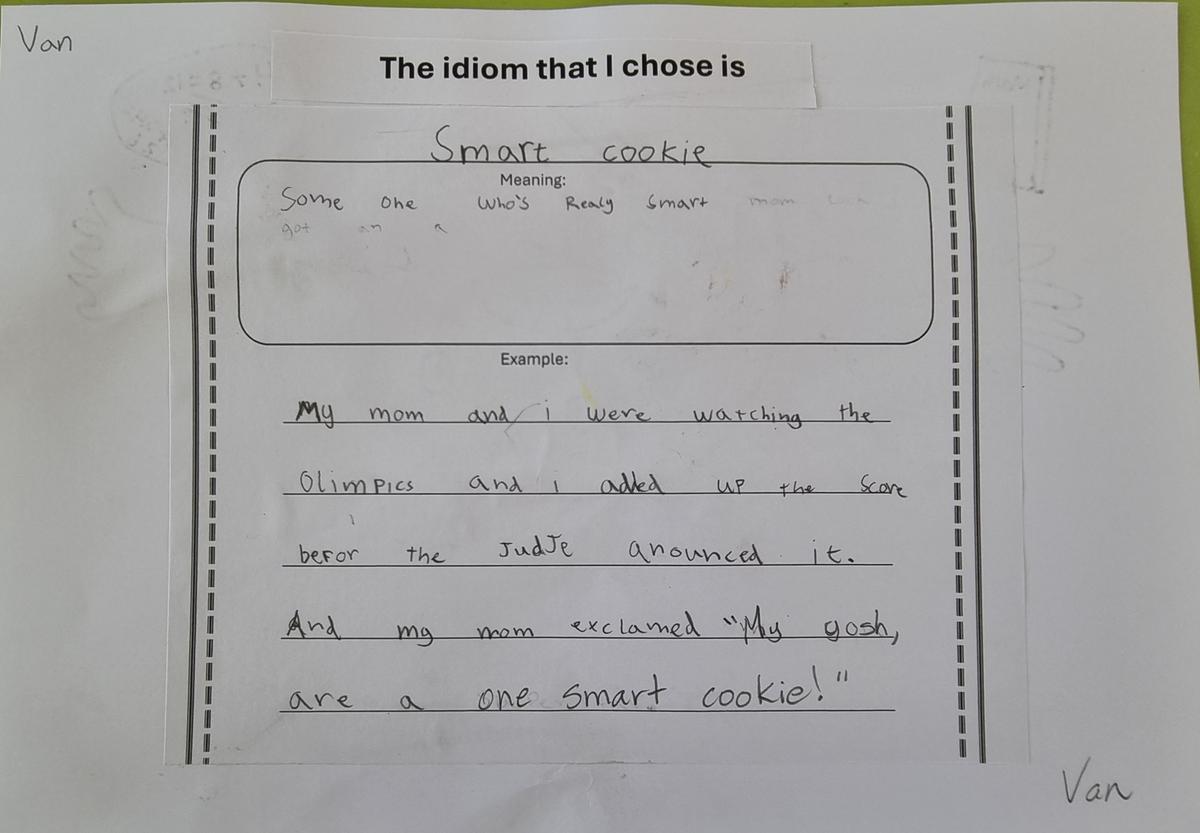 Van
The idiom that I chose is
Smart cookie
Meaning:
Some one Who's Realy Smart mom
got an a
Example:
My mom and i were watching the
Olimpics and i added up the Score
befor the Judje anounced it.
And my mom exclamed "My gosh,
are a one smart cookie!"
Van